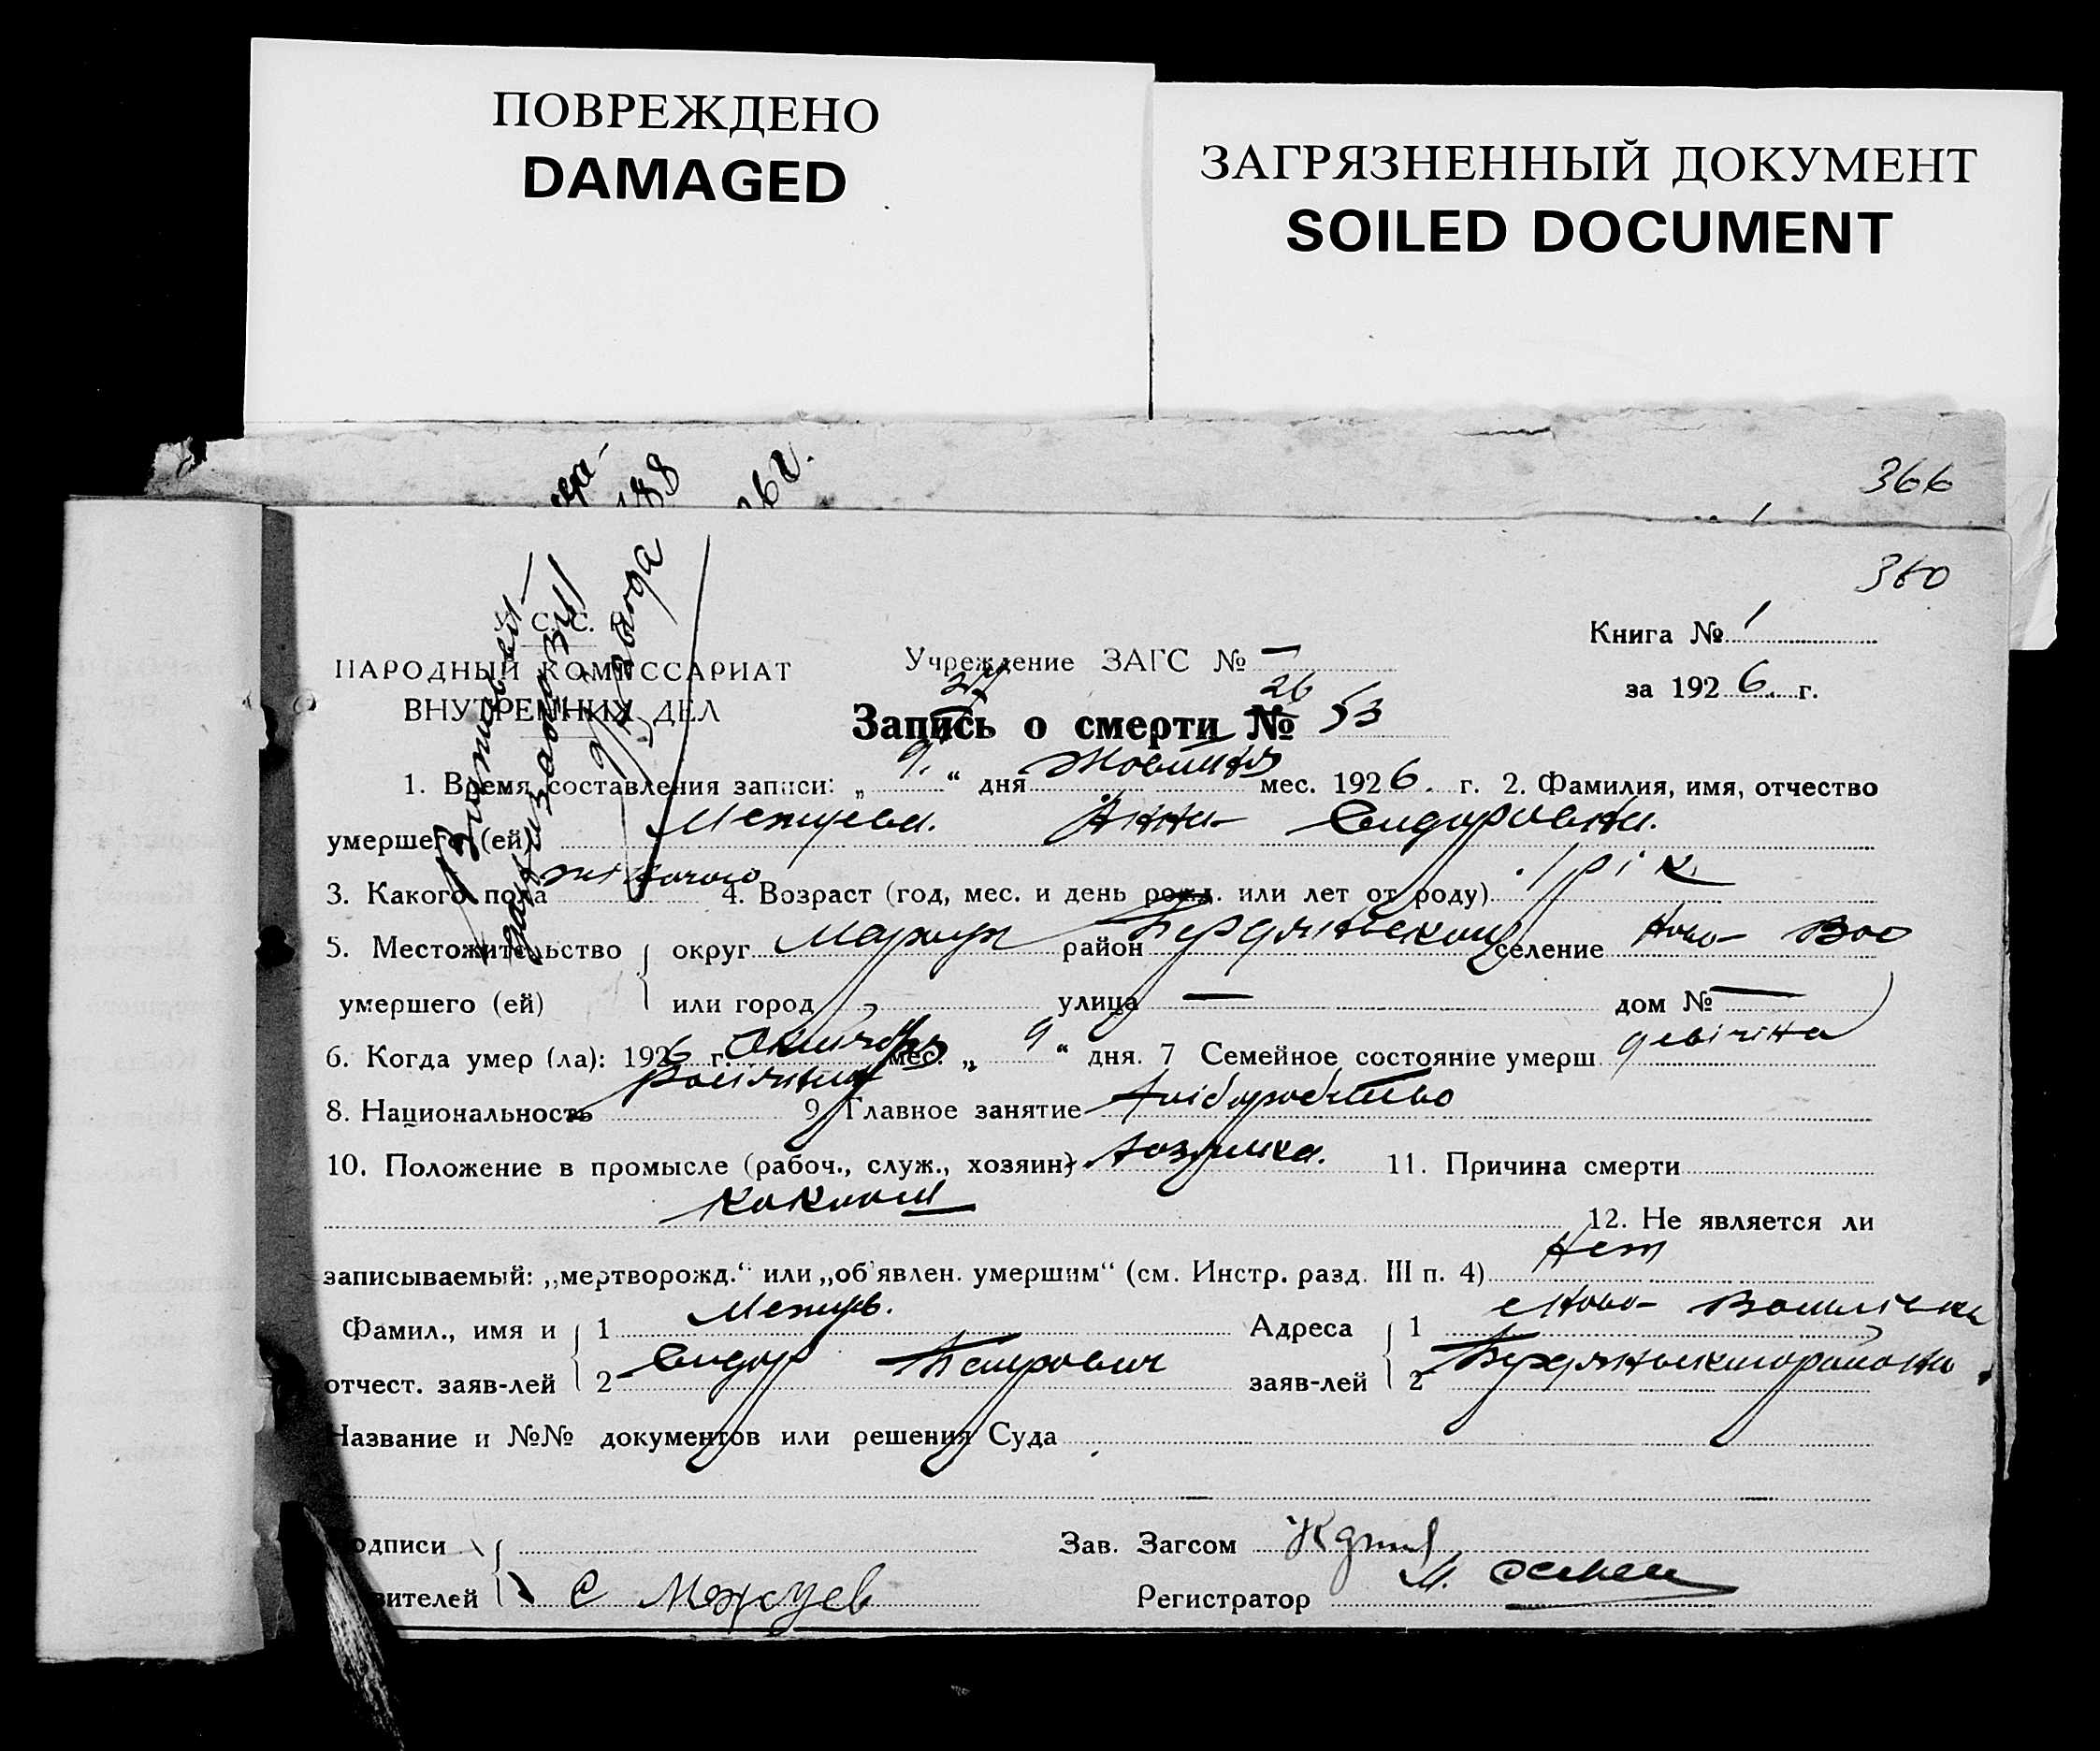 ПОВРЕЖДЕНО
DAMAGED
ЗАГРЯЗНЕННЫЙ ДОКУМЕНТ
SOILED DOCUMENT
366
360
С. С.
Книга № 1
НАРОДНЫЙ КОМИССАРИАТ
ВНУТРЕННИХ ДЕЛ
Учреждение ЗАГС № —
за 1926. г.
26
Запись о смерти № 53
1. Время составления записи: „ 9. “ дня Жовтня мес. 1926. г. 2. Фамилия, имя, отчество
умершего (ей) Межуева. Анна Сидоровна.
3. Какого пола жіночого 4. Возраст (год, мес. и день рожд. или лет от роду) 1 рік
5. Местожительство округ Маріуп район Бердянський селение Ново- Вас
умершего (ей) или город улица — дом № —
6. Когда умер (ла): 1926 г. Октября мес. „ 9 “ дня. 7 Семейное состояние умерш. девічна
8. Национальность росіянка 9. Главное занятие хліборобство
10. Положение в промысле (рабоч., служ., хозяин) хозяйка. 11. Причина смерти
коклюш 12. Не является ли
записываемый: „мертворожд.“ или „об'явлен. умершим“ (см. Инстр. разд. III п. 4) Нет
Фамил., имя и 1 Межуев. Адреса 1 с Ново-
отчест. заяв-лей 2 Сидор Петрович заяв-лей 2 Бердянського району
Название и №№ документов или решения Суда
одписи Зав. Загсом
вителей С Межуев Регистратор